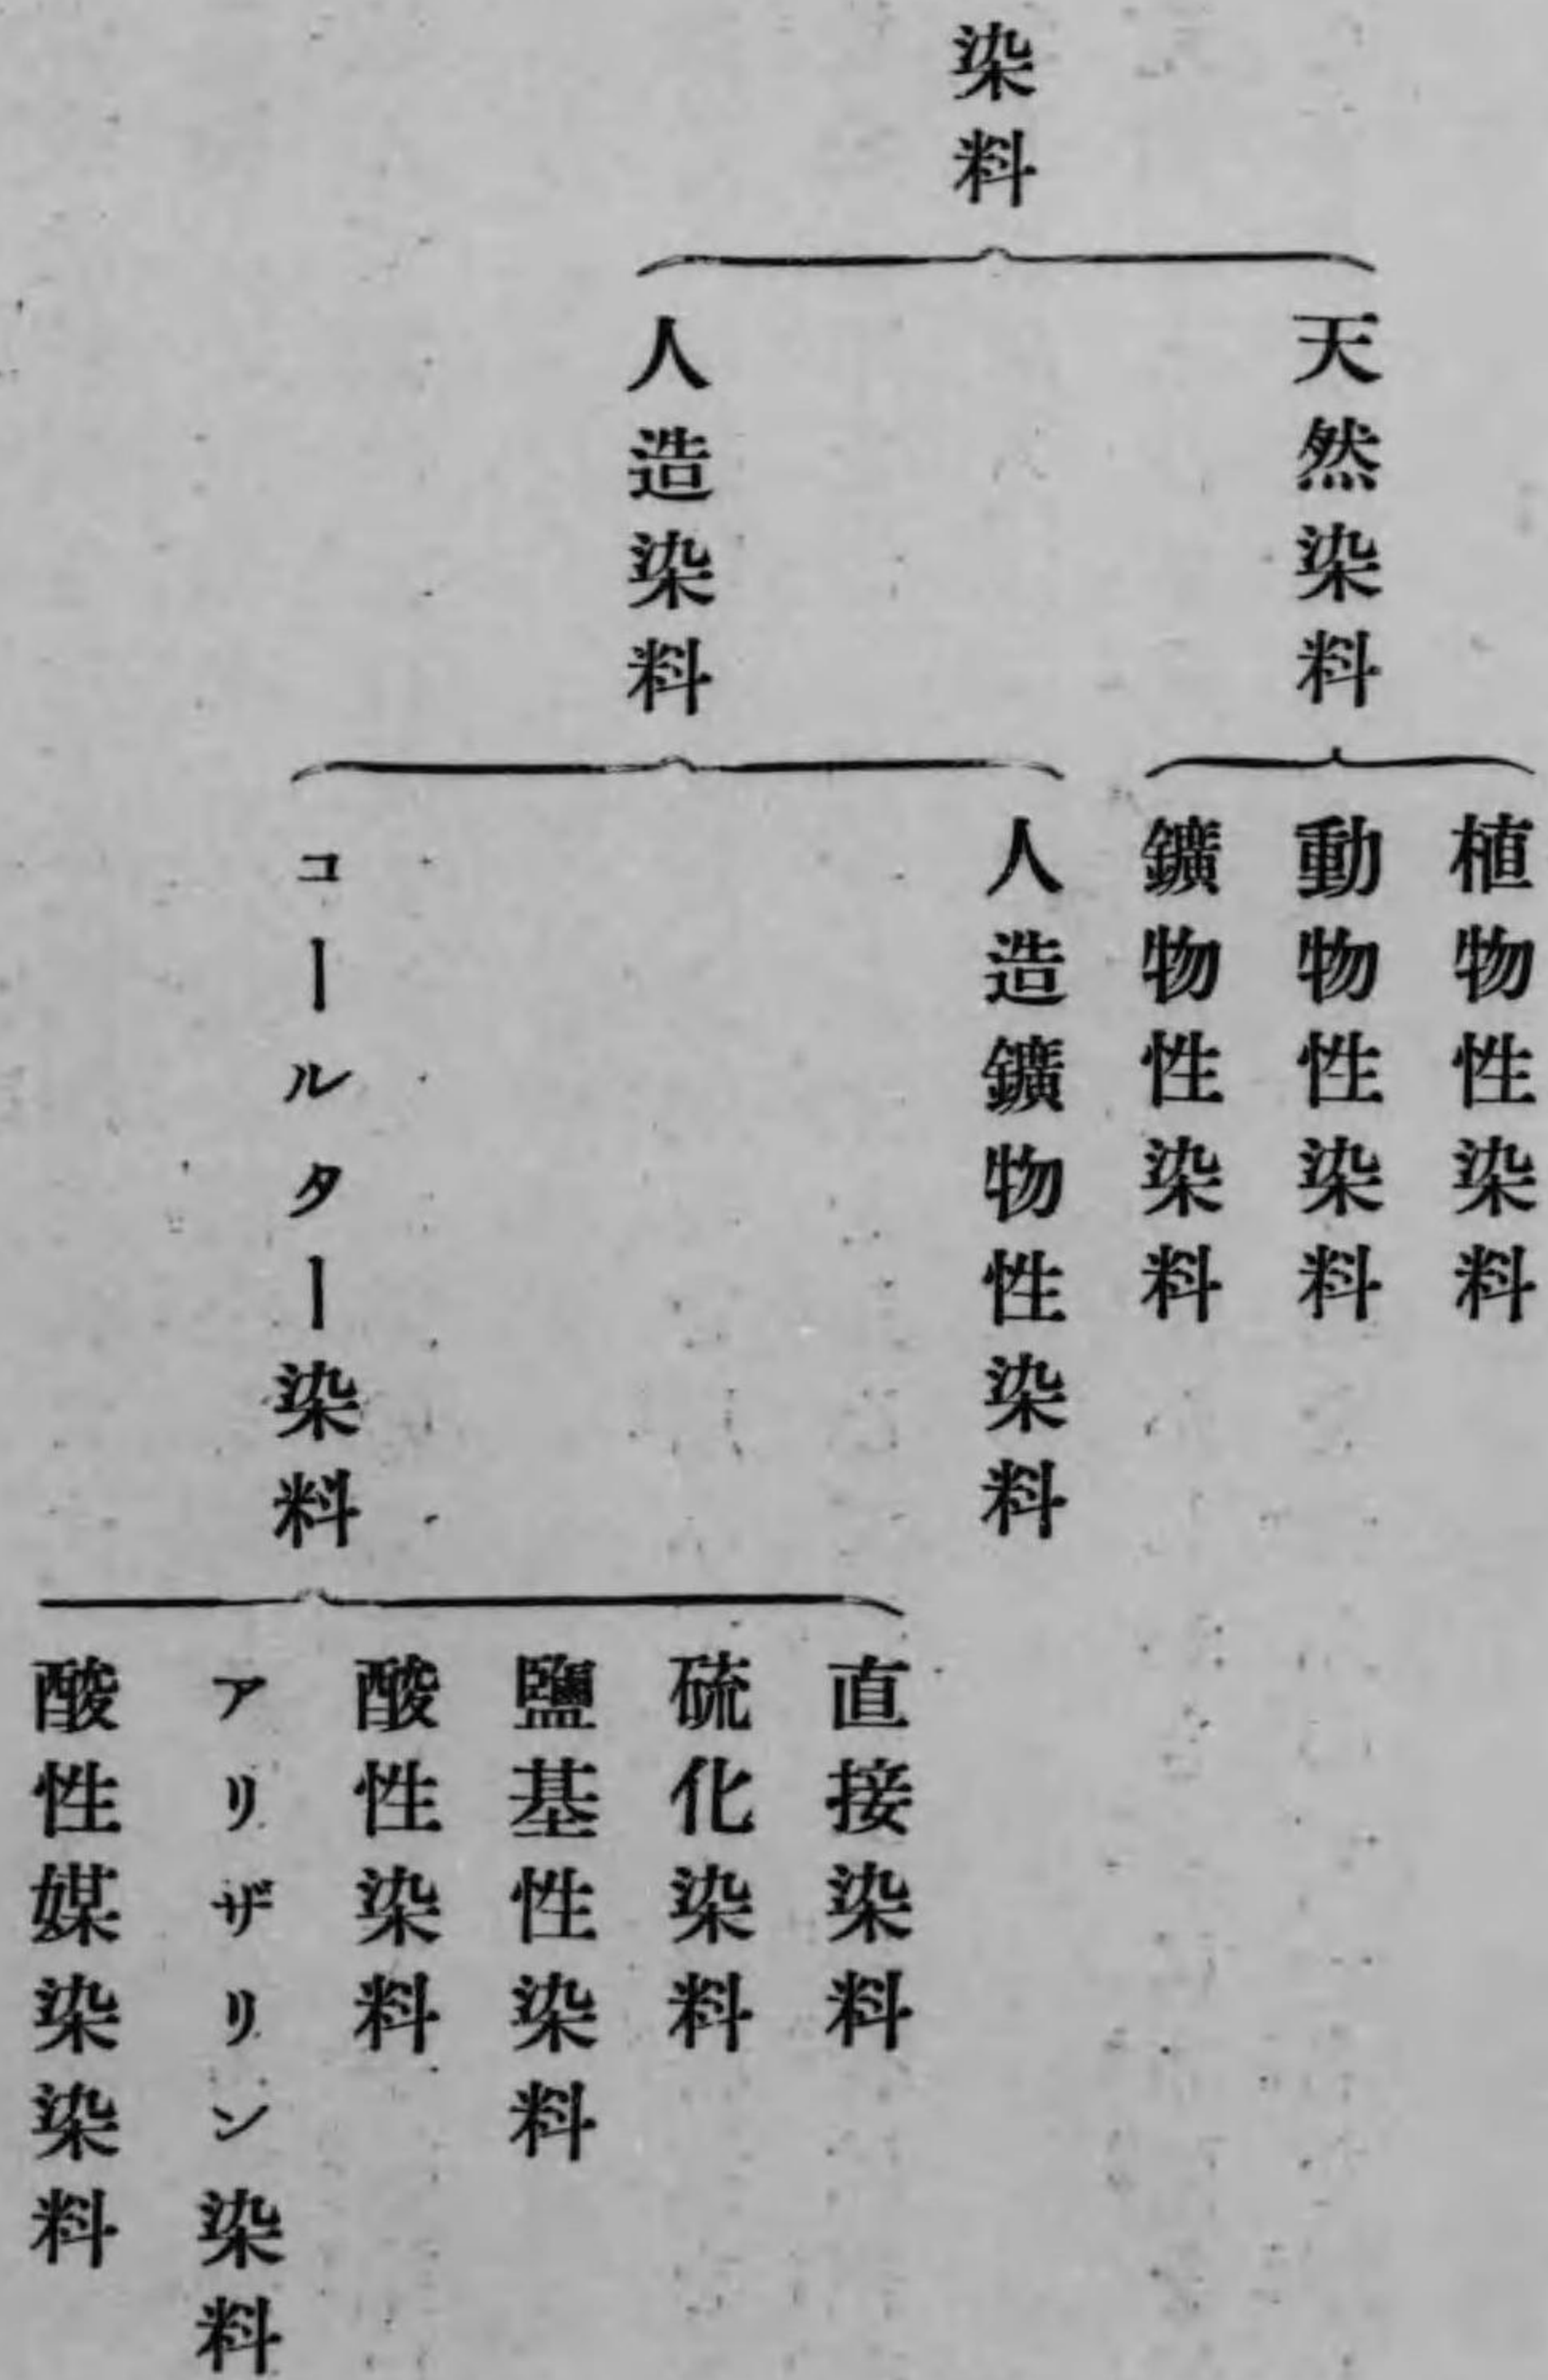 染料
天然染料
植物性染料
動物性染料
鑛物性染料
人造染料
人造鑛物性染料
コールター染料
直接染料
硫化染料
鹽基性染料
酸性染料
アリザリン染料
酸性媒染染料